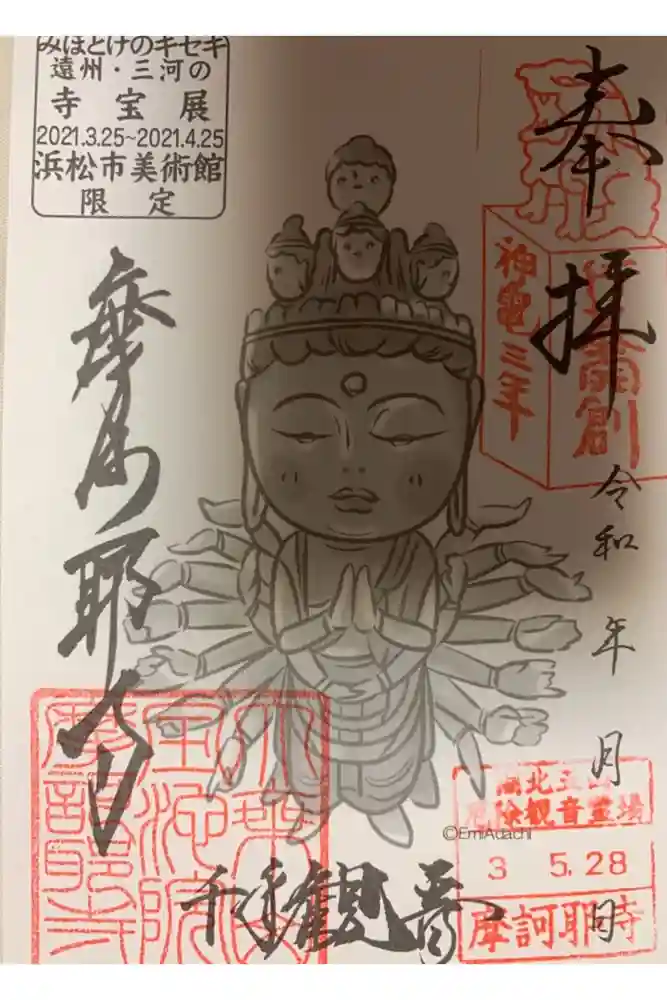 みほとけのキセキ
遠州・三河の
寺宝展
2021.3.25~2021.4.25
浜松市美術館
限定
奉拝
行基菩薩創
神亀三年
令和 年 月 日
摩訶耶寺
千手観音
©EmiAdachi
湖北五山
厄除観音霊場
3 5.28
摩訶耶寺